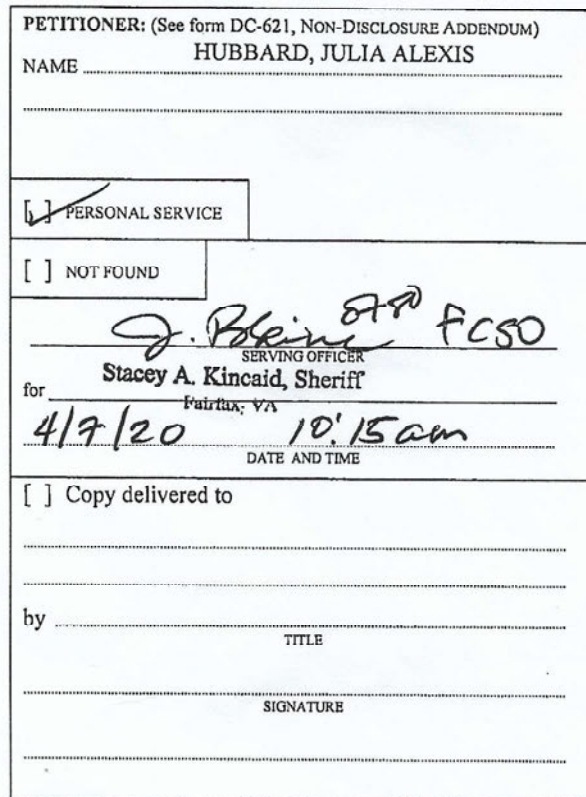 PETITIONER: (See form DC-621, NON-DISCLOSURE ADDENDUM)
HUBBARD, JULIA ALEXIS
NAME
[✓] PERSONAL SERVICE
[ ] NOT FOUND
J. FCSO
SERVING OFFICER
for Stacey A. Kincaid, Sheriff
Fairfax, VA
4/7/20 10:15 am
DATE AND TIME
[ ] Copy delivered to
by
TITLE
SIGNATURE